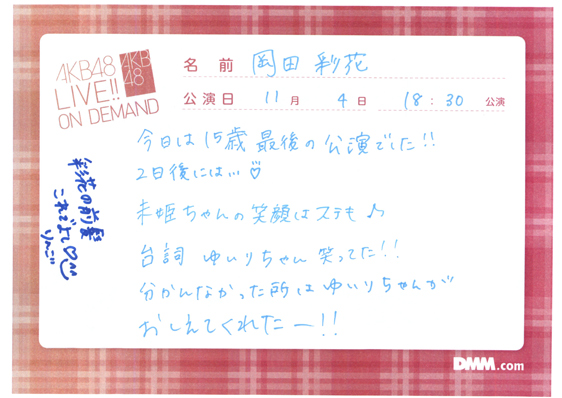 AKB48
LIVE!!
ON DEMAND
AKB
48
名前 岡田彩花
公演日 11月 4日 18:30 公演
今日は15歳最後の公演でした!!
2日後には…♡
未姫ちゃんの笑顔はステキ♪
台詞 ゆいりちゃん 笑ってた!!
分かんなかった所はゆいりちゃんが
おしえてくれたー!!
彩花の前髪
これでよし♡
りんご
DMM.com